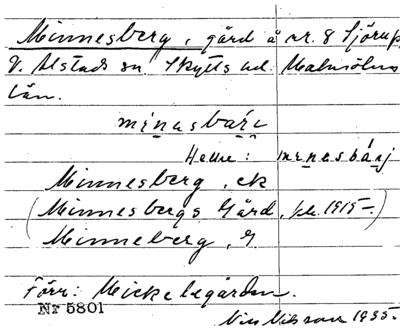 Minnesberg, gård å nr. 8 Sjörup,
V. Alstads sn Skytts hd. Malmöhus
län.
Hellre:
Minnesberg, ek
(Minnesbergs Gård, 1915–)
Minneberg, G
Förr: Mickelsgården.
Nr 5801
Nils Nilsson 1935.